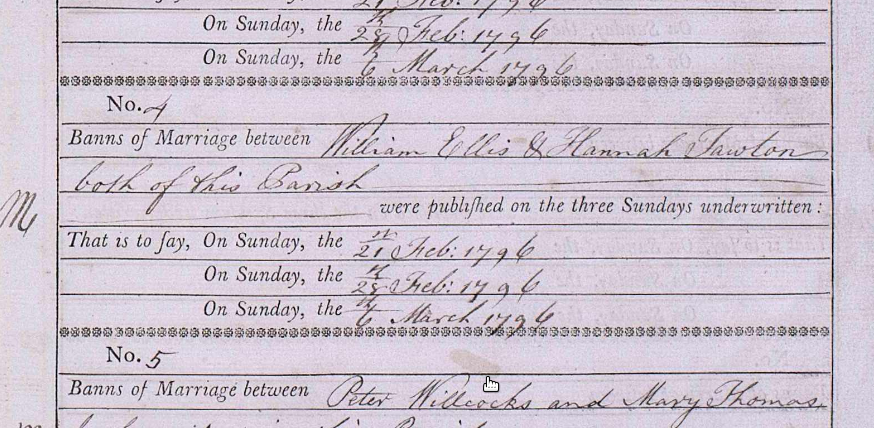 21 Feb: 1796
On Sunday, the 28th Feb: 1796
On Sunday, the 6th March 1796
No. 4
Banns of Marriage between William Ellis & Hannah Tawton
both of this Parish
M
were publiſhed on the three Sundays underwritten:
That is to ſay, On Sunday, the 21st Feb: 1796
On Sunday, the 28th Feb: 1796
On Sunday, the 6th March 1796
No. 5
Banns of Marriage between Peter Willcocks and Mary Thomas